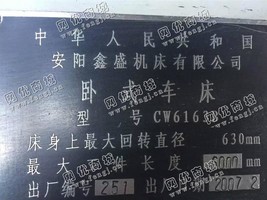 中华人民共和国
安阳鑫盛机床有限公司
卧式车床
型号 CW6163
床身上最大回转直径 630mm
最大工件长度 000mm
出厂编号 251 出厂 2007 2